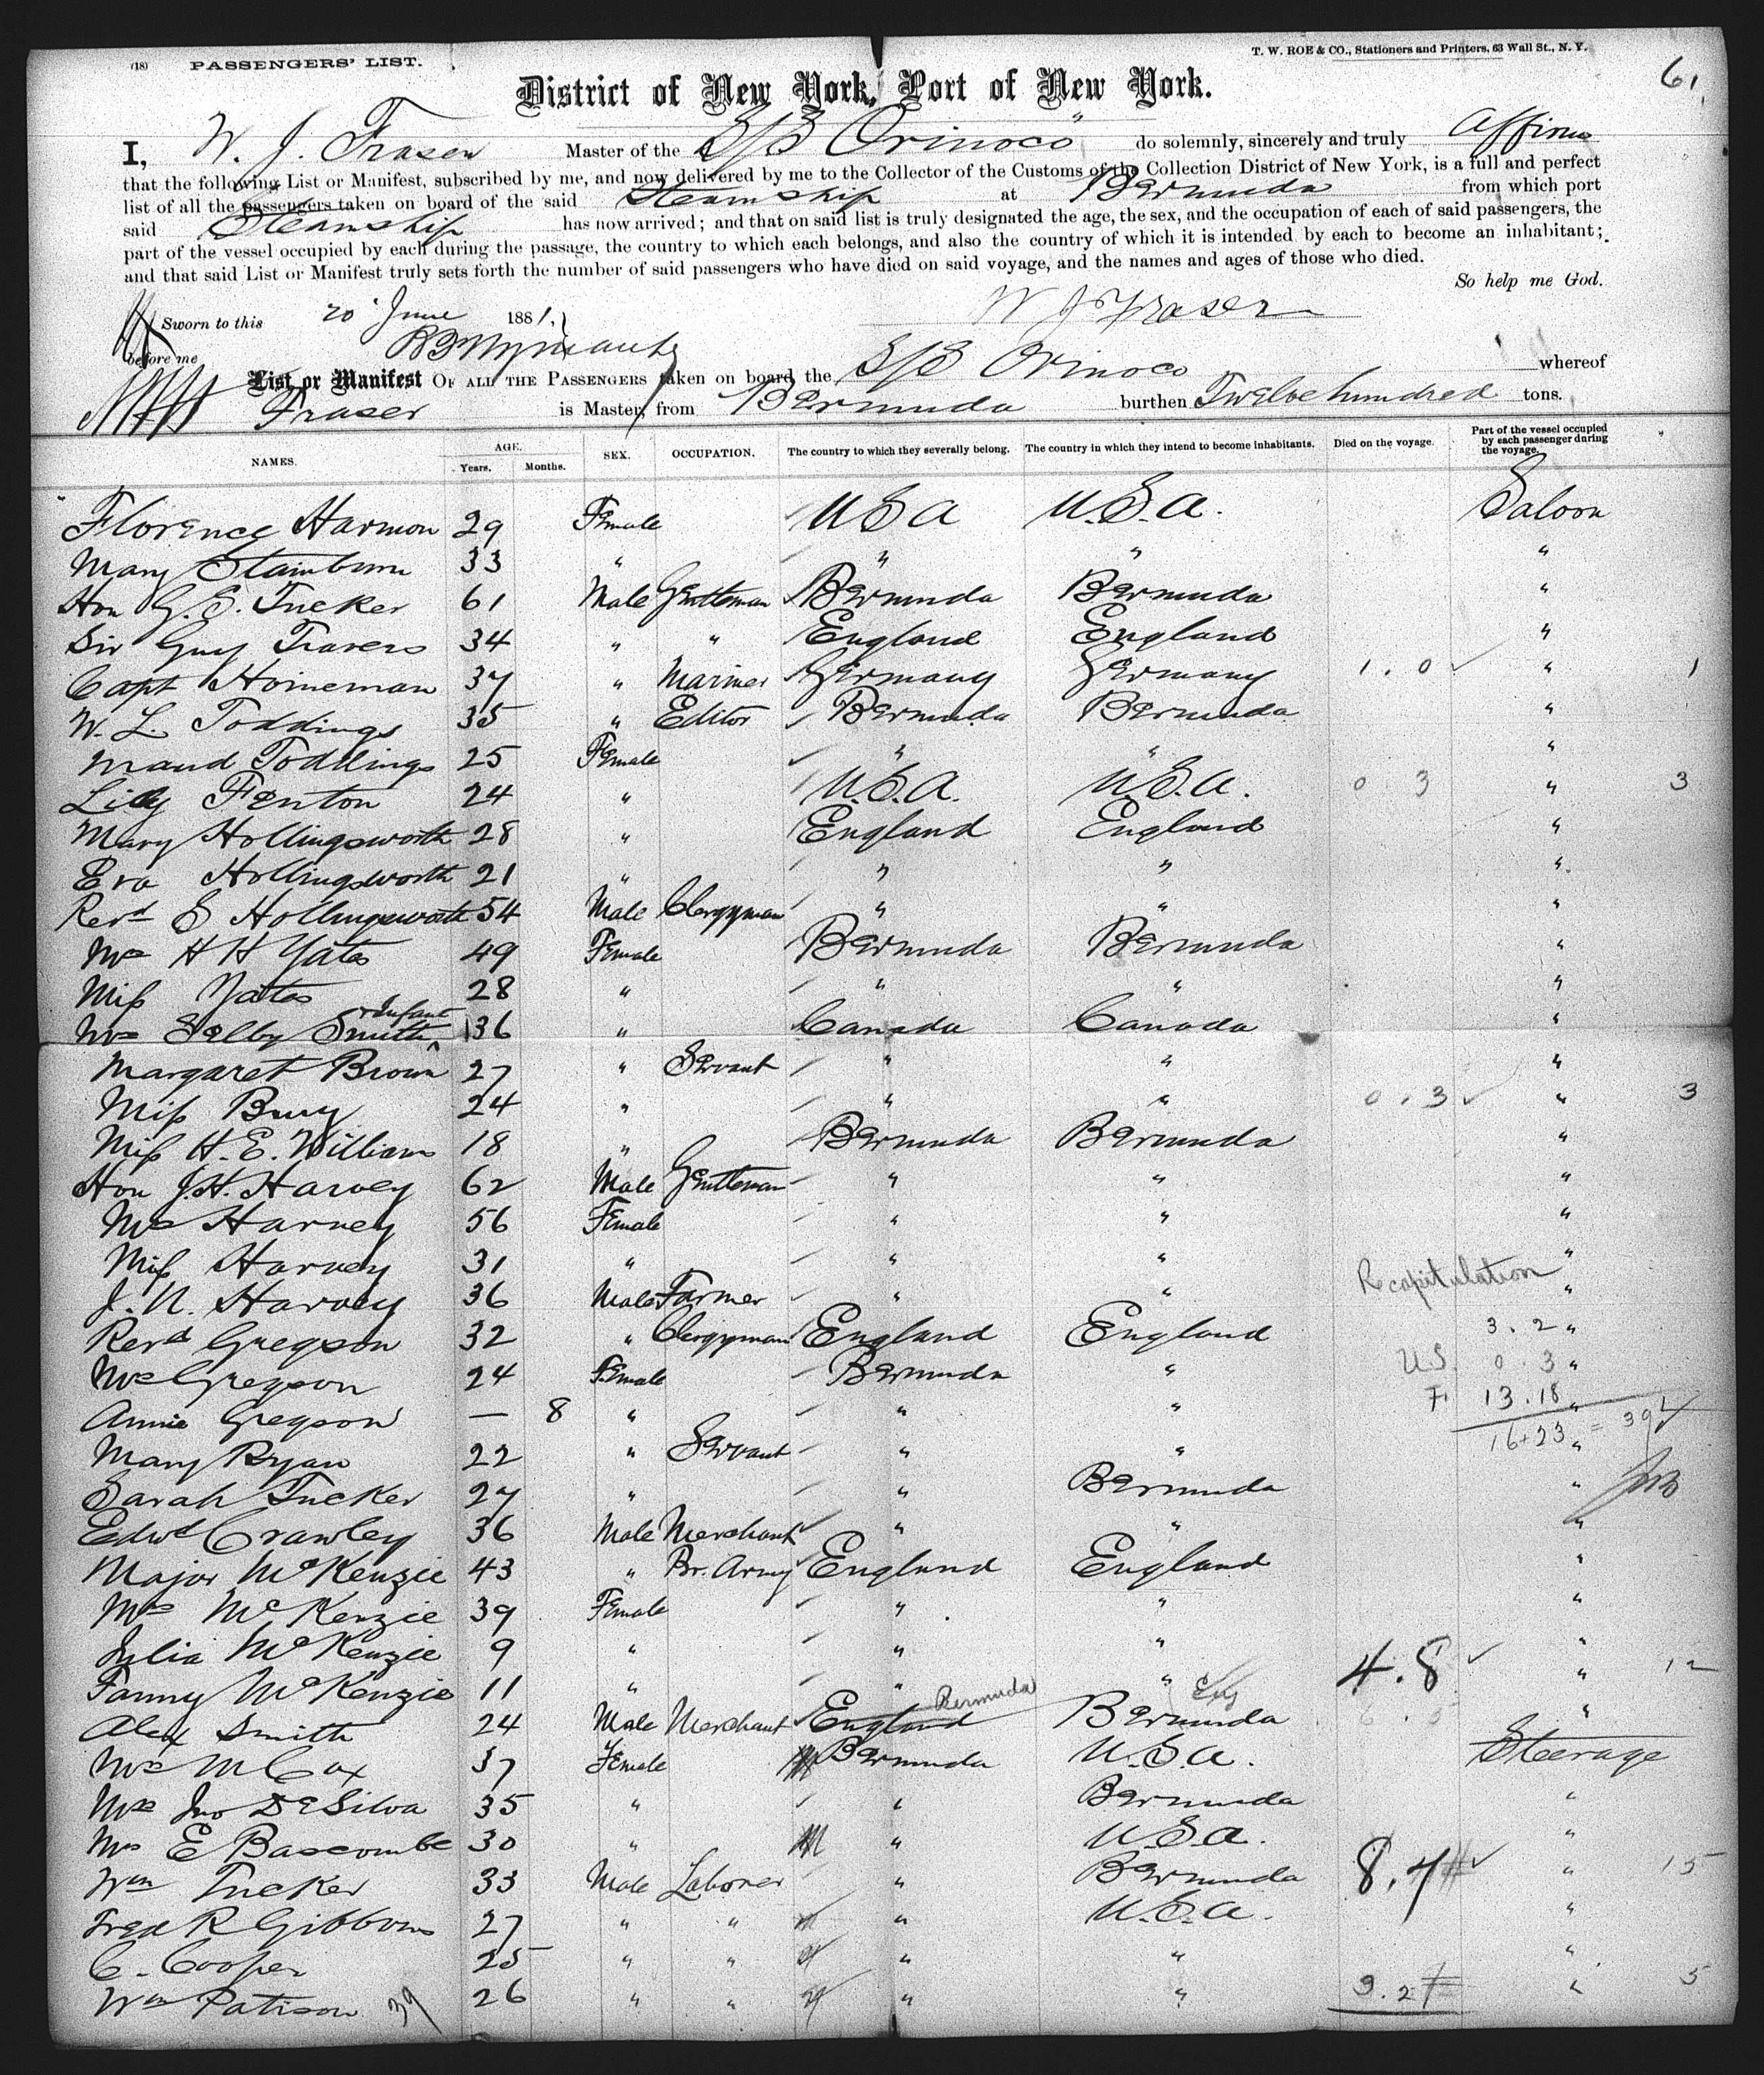 (18) PASSENGERS' LIST.
T. W. ROE & CO., Stationers and Printers, 63 Wall St., N. Y.
61
District of New York, Port of New York.
I, W. J. Fraser Master of the S/S Orinoco do solemnly, sincerely and truly affirm
that the following List or Manifest, subscribed by me, and now delivered by me to the Collector of the Customs of the Collection District of New York, is a full and perfect
list of all the passengers taken on board of the said Steamship at Bermuda from which port
said Steamship has now arrived; and that on said list is truly designated the age, the sex, and the occupation of each of said passengers, the
part of the vessel occupied by each during the passage, the country to which each belongs, and also the country of which it is intended by each to become an inhabitant;
and that said List or Manifest truly sets forth the number of said passengers who have died on said voyage, and the names and ages of those who died.
So help me God.
Sworn to this 20 June 1881, W J Fraser
before me
List or Manifest OF ALL THE PASSENGERS taken on board the S/S Orinoco whereof
Fraser is Master, from Bermuda burthen Twelve hundred tons.
NAMES. AGE. Years. Months. SEX. OCCUPATION. The country to which they severally belong. The country in which they intend to become inhabitants. Died on the voyage. Part of the vessel occupied by each passenger during the voyage.
Florence Harmon 29 Female U S A U.S.A. Saloon
Mary Stamburn 33 " " " "
Hon G. S. Tucker 61 Male Gentleman Bermuda Bermuda "
Sir Guy Travers 34 " " England England "
Capt Hoineman 37 " Mariner Germany Germany 1.0 " 1
W. L. Toddings 35 " Editor Bermuda Bermuda "
Maud Toddings 25 Female " " "
Lily Fenton 24 " U.S.A. U.S.A. 0 3 " 3
Mary Hollingsworth 28 " England England "
Eva Hollingsworth 21 " " " "
Revd S Hollingsworth 54 Male Clergyman " " "
Mrs H H Yates 49 Female Bermuda Bermuda "
Miss Yates 28 " " " "
Mrs Selby Smith + Infant 36 " Canada Canada "
Margaret Brown 27 " Servant " " "
Miss Bury 24 " " " 0.3 " 3
Miss H. E. Williams 18 " Bermuda Bermuda "
Hon J. H. Harvey 62 Male Gentleman " " "
Mrs Harvey 56 Female " " "
Miss Harvey 31 " " " "
J. N. Harvey 36 Male Farmer " " Recapitulation "
Revd Gregson 32 " Clergyman England England 3.2 "
Mrs Gregson 24 Female Bermuda " U.S. 0.3 "
Annie Gregson — 8 " " " F. 13.18 "
Mary Ryan 22 " Servant " " 16+23 = 39 "
Sarah Tucker 27 " " Bermuda "
Edwd Crawley 36 Male Merchant " " "
Major McKenzie 43 " Br. Army England England "
Mrs McKenzie 39 Female " " "
Julia McKenzie 9 " " " "
Fanny McKenzie 11 " " " 4.8 " 12
Alex Smith 24 Male Merchant England Bermuda Bermuda Eng "
Mrs M Cox 37 Female Bermuda U.S.A. Steerage
Mrs Jno DeSilva 35 " " Bermuda "
Mrs E Bascombe 30 " " U.S.A. "
Wm Tucker 33 Male Laborer " Bermuda 8.7 " 15
Fred R Gibbons 27 " " " U.S.A. "
C. Cooper 25 " " " " "
Wm Patison 39 26 " " " " 3.2 " 5